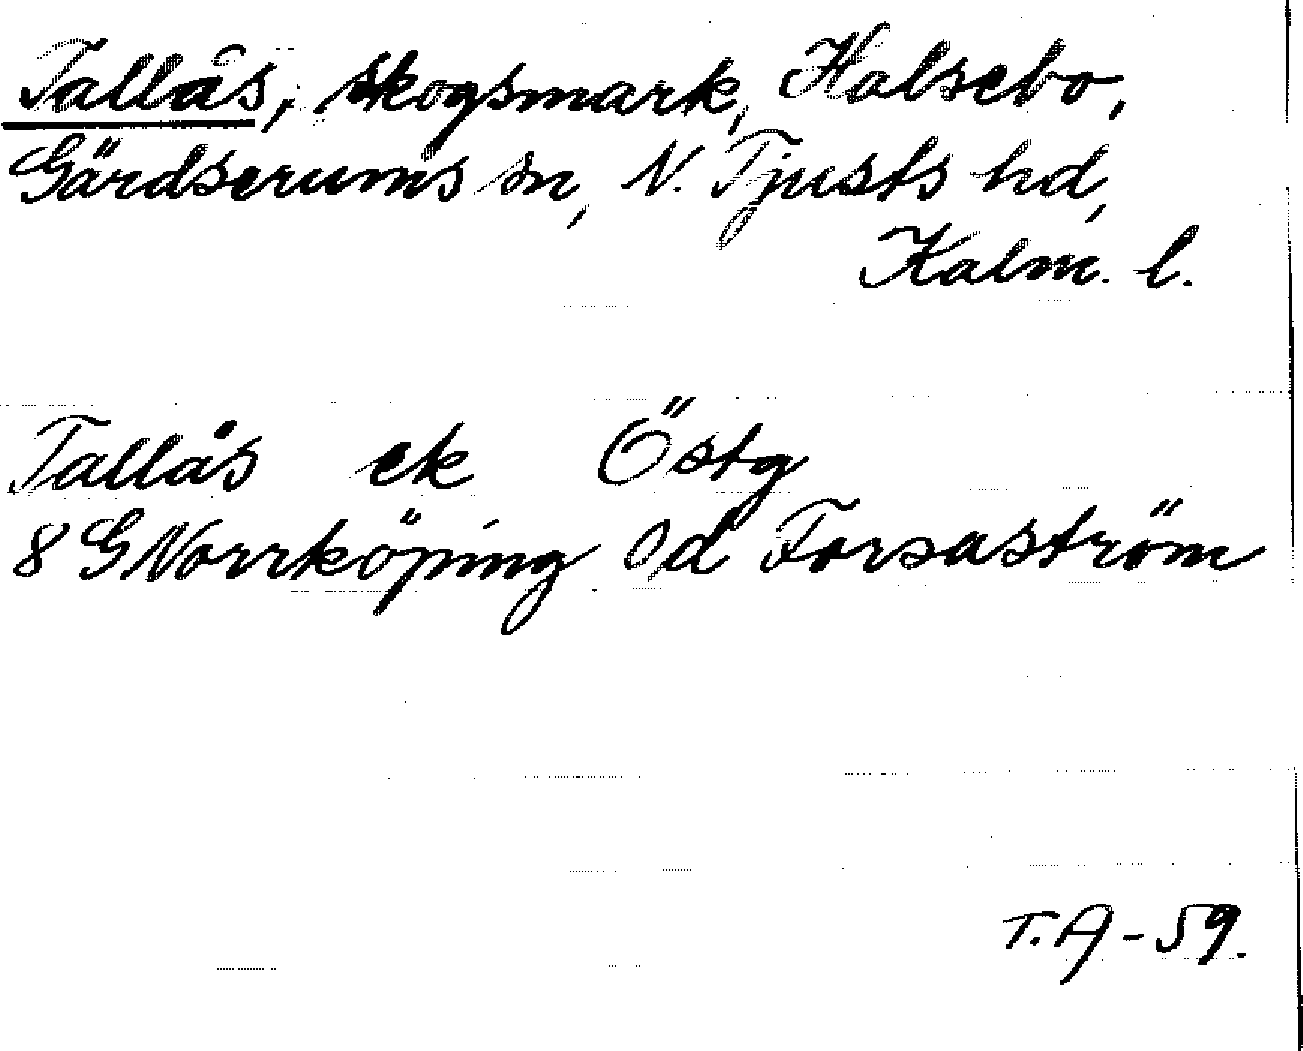 Tallås, skogsmark, Halsebo,
Gärdserums sn, N. Tjusts hd,
Kalm. l.
Tallås ek Östg
8 G Norrköping Sd Forsaström
T. A - 59.